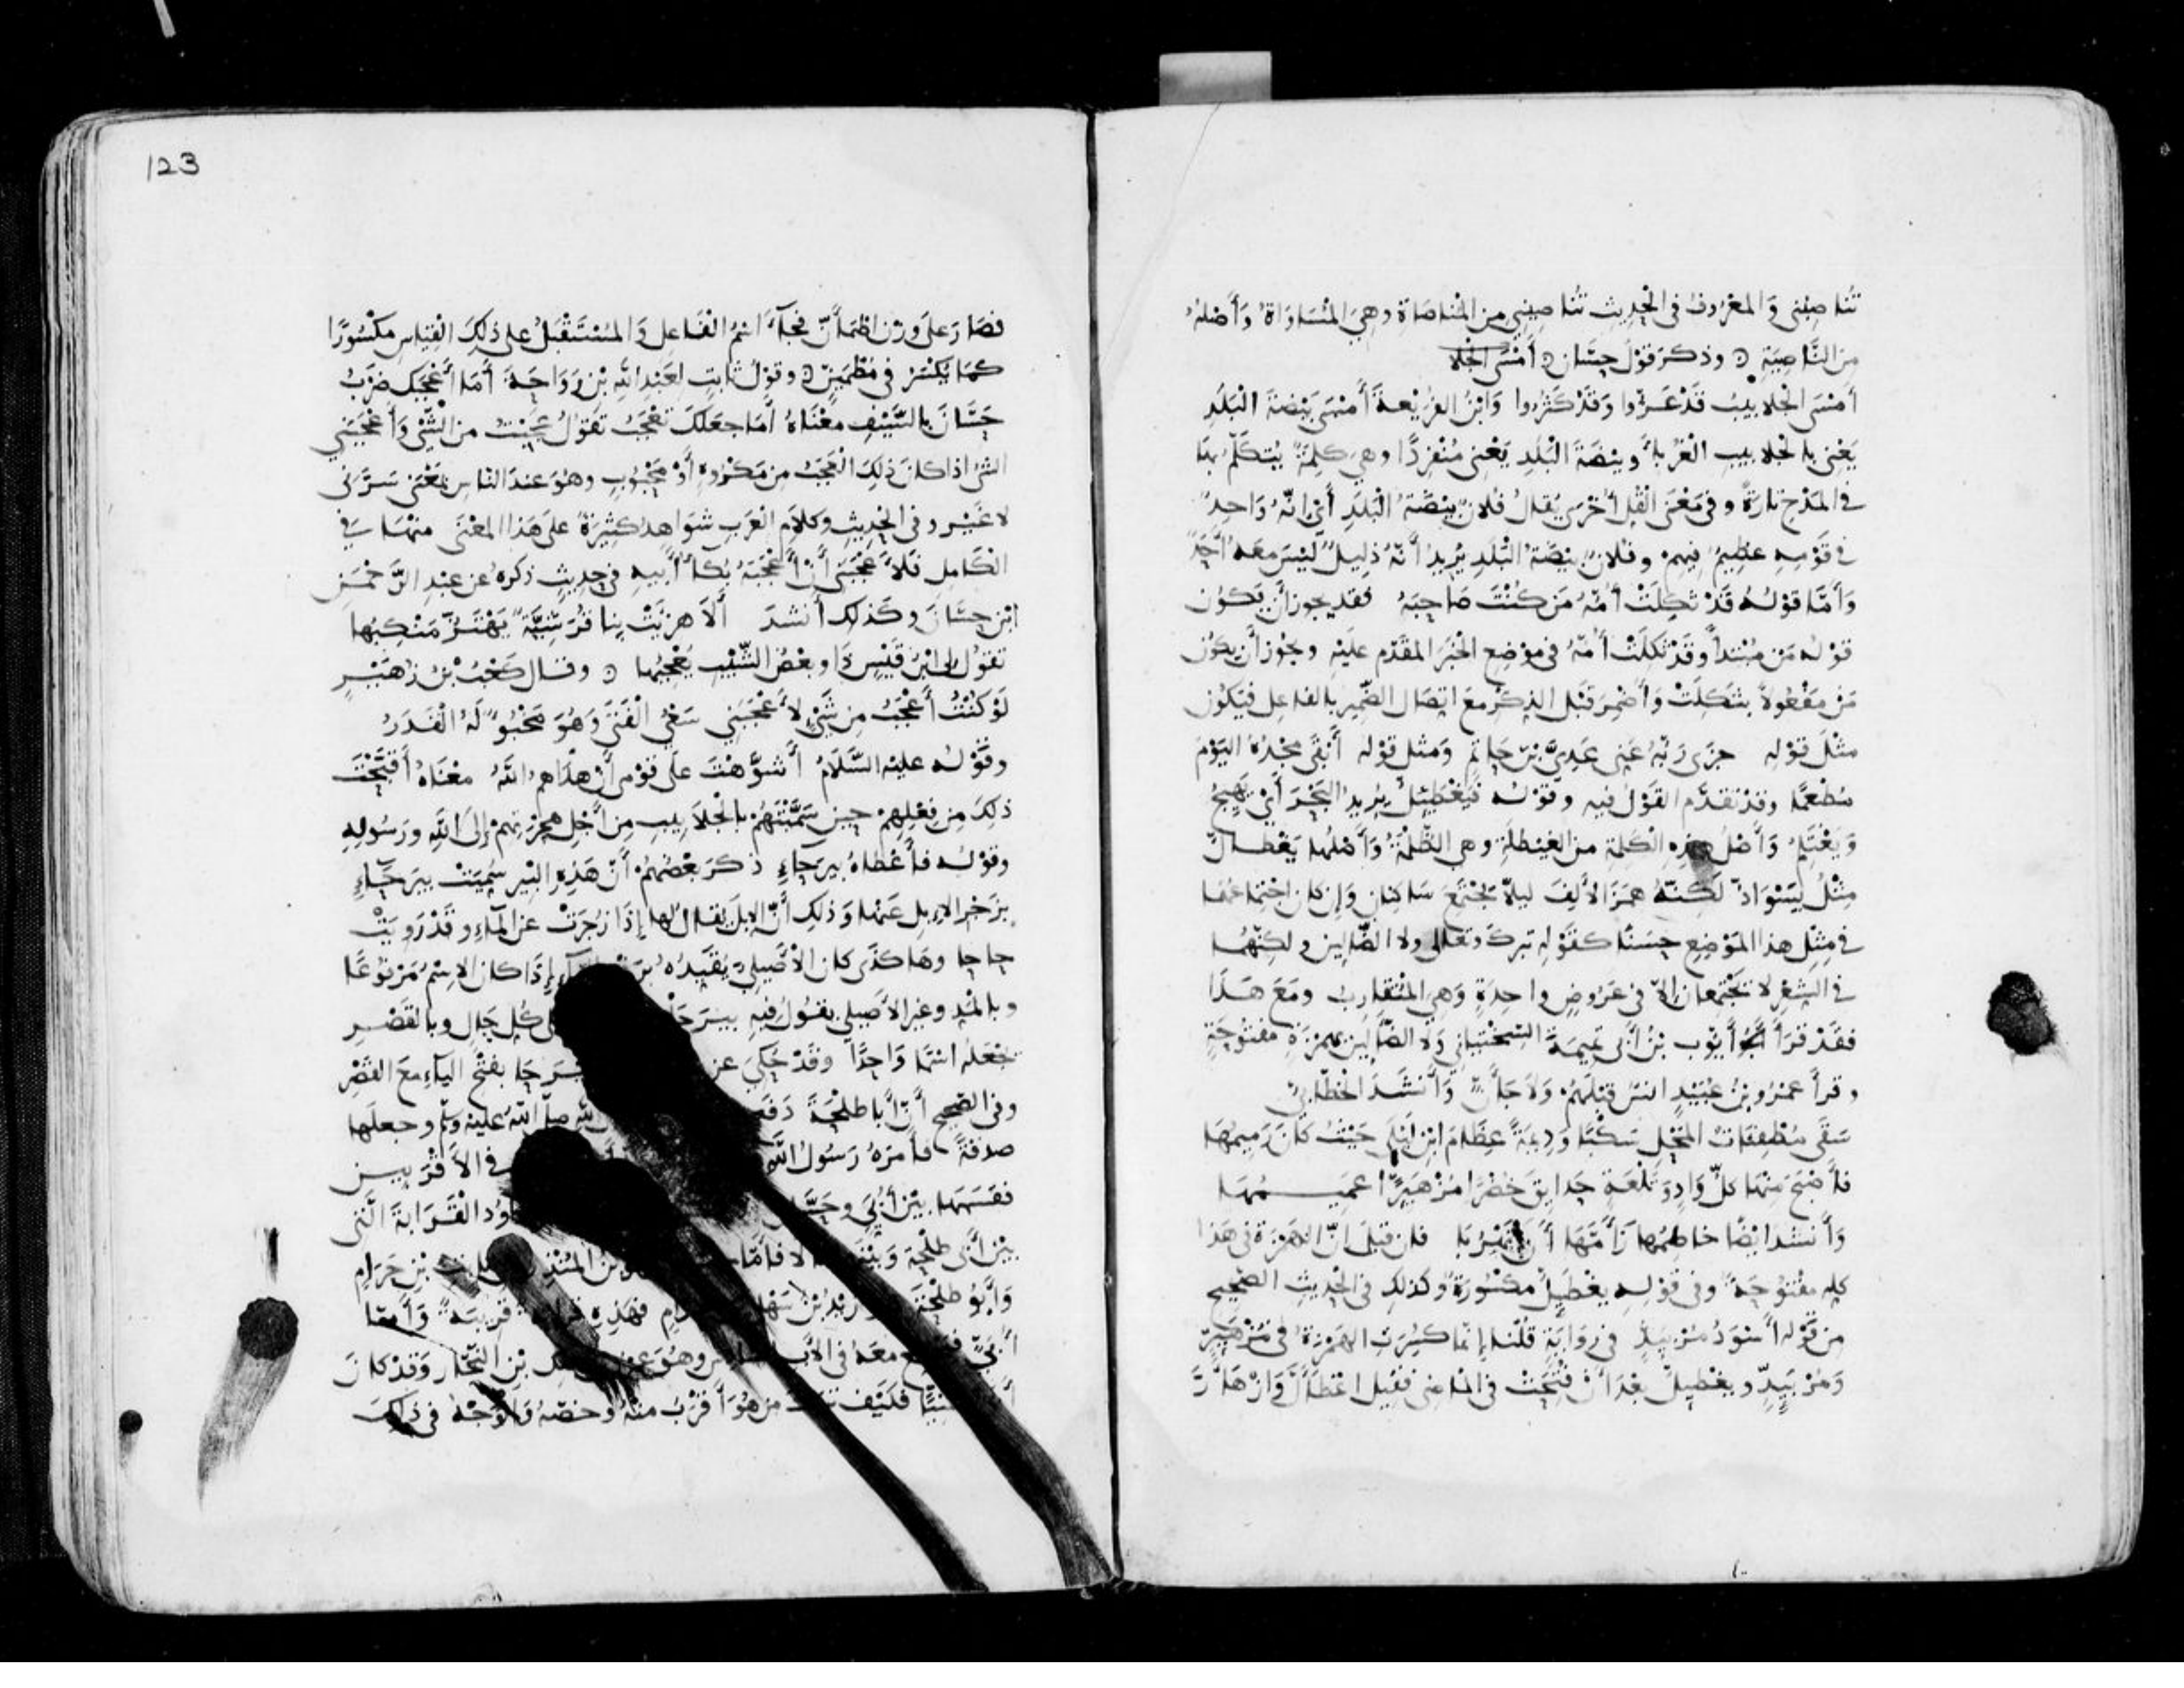 تُنَاصِبُني وَالمعْرُوفُ في الْحَدِيث تُنَاصِيني مِن المُنَاصَاة وهيَ المُسَاوَاةُ وَأَصْلُهُ
مِن النَّاصِيَةِ وذكرَ قَوْلَ حسَّان أَمْسَى الجَلَا
أَمْسَى الجَلابِيبُ قَدْ عَزّوا وَقَدْ كَثُرُوا وَابْنُ الفُرَيْعةِ أَمْسَى بَيْضةَ البَلَدِ
يَعْنى بالجلابيبِ الْغُرَبَاءَ وبَيْضَةَ الْبَلَدِ يَعْنى مُنْفرِدًا وهيَ كلِمَةٌ يُتكَلَّمُ بهَا
في المَدْحِ تارَةً وفى مَعْنى القُلِّ أُخْرَى يُقَالُ فُلانٌ بَيْضَةُ الْبَلَدِ أَيْ انّهُ وَاحِدٌ
في قَوْمِهِ عظِيمٌ فيهمْ وفلانٌ بَيْضَةُ البَلَدِ يُرِيدُ أَنّهُ ذلِيلٌ لَيْسَ معَهُ أَحَدٌ
وَأَمَّا قوْلُهُ قَدْ ثكِلَتْ أُمُّهُ مَن كُنْتَ صَاحِبَهُ فقد يجوز أَن يَكُون
قوْلُه مَن مُبْتدأً وقَدْ ثكلَتْ أُمّهُ في موْضِعِ الخبَرِ المقَدّمِ علَيْهِ ويجُوز أَن يكُون
مَنْ مَفْعُولاً بثكِلَتْ وَأَضْمِرَ قبْلَ الذِكْرِ معَ اتصَالِ الضّمِيرِ بالفاعِلِ فيَكُون
مثْلَ قوْلِهِ جزَى رَبّهُ عَنى عَدِيَّ بْنَ حَاتمٍ وَمثْلِ قوْلِهِ أَبْقَى مَجْدُهُ اليَوْمَ
مُطْعِمًا وقدْ تقدّم القَوْلُ فيه وقوْلُه فيَغْطئِلُّ يرِيدُ البَحْرَ أَيْ يَهِيجُ
وَيَغْتَلِمُ وَأَصْلُ هذِهِ الكَلمَةِ من الغيْطَلَةِ وهى الظُّلْمَةُ وَأَصْلُهَا يَغْطَالُّ
مِثْلُ يَسْوَادُّ لَكِنّهُ همَزَ الأَلِفَ ليلاّ يَجْتمِعَ سَاكِنانِ وَإِن كان اجْتِماعُهُما
في مِثْلِ هذا المَوْضِعِ حسَنًا كقَوْلِهِ تبَركَ وتعَالى ولا الضَّالِين ولكِنّهُمَا
في الشِعْرِ لا يَجْتمِعانِ إلاّ في عَرُوضٍ واحِدَةٍ وَهيَ المُتَقَارِبُ ومَعَ هَذَا
فقَدْ قرَأَ أَيّوب بْنُ أَبى تميمَةَ السخْتيَانِي وَلاَ الضَّأَلين بهمْزَةٍ مفْتوحَةٍ
وقرأَ عمْرُو بْنُ عُبَيْدٍ انسٌ قبْلَهُمْ وَلاَ جَأَنٌّ وَأَنشَدَ الخطّابيُّ
سَقَى مُطْفِقَاتُ المَحْلِ سَكْبًا وَدِيمَةً عِظَامَ ابْنِ لَيْلَى حَيْثُ كَانَ رَمِيمُهَا
فأَصْبَحَ مِنْهَا كلُّ وَادٍ وَتَلْعَةٍ حَدايِقَ خُضْرًا مُزْهَئِرًّا عَمِيمُهَا
وَأَنشَد ايْضًا خاطِمَها زَأَمَّهَا أَنْ تَهْرُبَا فإن قيلَ انّ الهَمْزَة في هَذا
كلهِ مفْتوحَةٌ وفى قوْلهِ يغْطَئِلُّ مكْسُورَةٌ وكذلِك في الحْدِيثِ الصَّحِيحِ
مِن قوْلِه أَسْوَدُ مُرْبَئِدٌّ في رِوَايَةٍ قُلْنَا إنّما كسِرَتِ الهَمْزةُ في مُزْهَئِرٍّ
وَمُرْبَئِدٍّ ويغْطَئِلُّ بعْدَ أَنْ فُتحَتْ في المَاضِى فقيل اغْطَأَلَّ وَازْهَأَرَّ
123
فصَارَ عَلَى وَزْنِ اطْمَأَنَّ فجَاءَ اسْمُ الفَاعلِ وَالمُسْتَقْبَلُ علَى ذلِكَ القِياسِ مكْسُورًا
كمَا يُكْسَرُ في مُطْمَئِنٍّ وقوْلُ ثَابتٍ لِعَبْدِ اللَّهِ بْنِ رَوَاحَةَ أَمَا أَعْجَبَك ضَرْبُ
حَسَّانَ بالسَّيْفِ مَعْنَاهُ أَمَا جعَلَكَ تعْجَبُ تقُولُ عَجِبْتُ من الشَّيْ وَأَعْجَبَني
الشيْ اذا كانَ ذلِكَ العَجَبُ مِن مَكْرُوهٍ أَوْ مَحْبُوبٍ وهُوَ عندَ النّاسِ بمَعْنى سَرَّنى
لا غَيْر وفى الحْدِيثِ وَكلاَمِ العَربِ شوَاهدُ كثِيرَةٌ علَى هَذا المعْنَى منهَا في
الكامِلِ فَلاَ عَجَبَى أَنْ أَعْجَبَهُ بُكاءُ أَبيهِ في حدِيثٍ ذكرَهُ عن عبْدِ الرَّحْمَنِ
ابْنِ حسَّانَ وكَذلِك أَنشدَ أَلاَ هزِيَتْ بِنا قُرَشِيّةٌ يَهْتَزُّ مَنْكِبُهَا
تقُولُ لِى ابْنَ قَيْسٍ ذَا وبعْضُ الشَّيْبِ يُعْجِبُها وقال كعْبُ بْنُ زُهَيْرٍ
لَوْ كُنْتُ أَعْجَبُ مِن شَيْءٍ لأَعْجَبَنِي سَعْيُ الْفَتَى وَهُوَ مَخْبُوٌّ لَهُ الْقَدَرُ
وقَوْلُه عليْهِ السَّلاَمُ أَشوَّهْتَ علَى قوْمِى أَنْ هدَاهمُ اللَّهُ معْنَاهُ أَقَبَّحْتَ
ذلِكَ مِن فِعْلِهِمْ حِين سَمَّيْتَهُمْ بالجْلاَبِيبِ مِن أَجْلِ هِجْرَتِهمْ إلَى اللَّهِ ورَسُولِهِ
وقوْلُه فأَعْطاهُ بيرَحاءٍ ذكَرَ بعْضُهُمْ أَنّ هَذِه البيْر سُمِّيَتْ بيرَحاءٍ
بزَجْرِ الإبِلِ عَنْهَا وَذلِك أَنّ الإبِلَ يقالُ لها إذَا زُجرَتْ عن المَاءِ وقَدْ رَوِيَتْ
حا حا وهَاكذَى كان الأَصِيلىُّ يُقيّدُه بِرَفْعِ الرَّاءِ إذَا كان الاسْمُ مَرْفوعًا
وبالمَدِّ وغيْرُ الأَصِيلي يقُولُ فيهِ بيرَحَا كُلِّ حَالٍ وبالقَصْرِ
يجْعَلُه اسْمًا وَاحِدًا وقَدْ حُكيَ عن بيْرَحَا بفتْحِ الباءِ معَ القصْرِ
وفى الصَّحِيحِ أَنّ أَبا طلْحَةَ دَفَعَ اللَّهِ صلَّى اللَّهُ علَيْهِ وسَلّم وجعلَها
صدقةً فأَمَرَهُ رَسُولُ اللَّهِ في الأَقْرَبِين
فقسَمَها بيْن أُبَيّ وحَسَّان القَرَابَةَ الَّتى
بيْن أَبى طلْحَة وَبَيْنَهُ فأَمّا بْنُ المُنْذِرِ بْنِ حَرَامٍ
وَأَبُو طلْحَةَ زَيْدُ بْنُ سَهْلِ فهَذِه قَرِيبَةٌ وَأَمّا
أُبَيٌّ معَهُ في الأَبِ وهُوَ بْنِ النَّجَّارِ وَقَدْ كانَ
فكيْف مَن هُوَ أَقْرَبُ منْهُ وخصّهُ وَالوَجْهُ في ذلِكَ